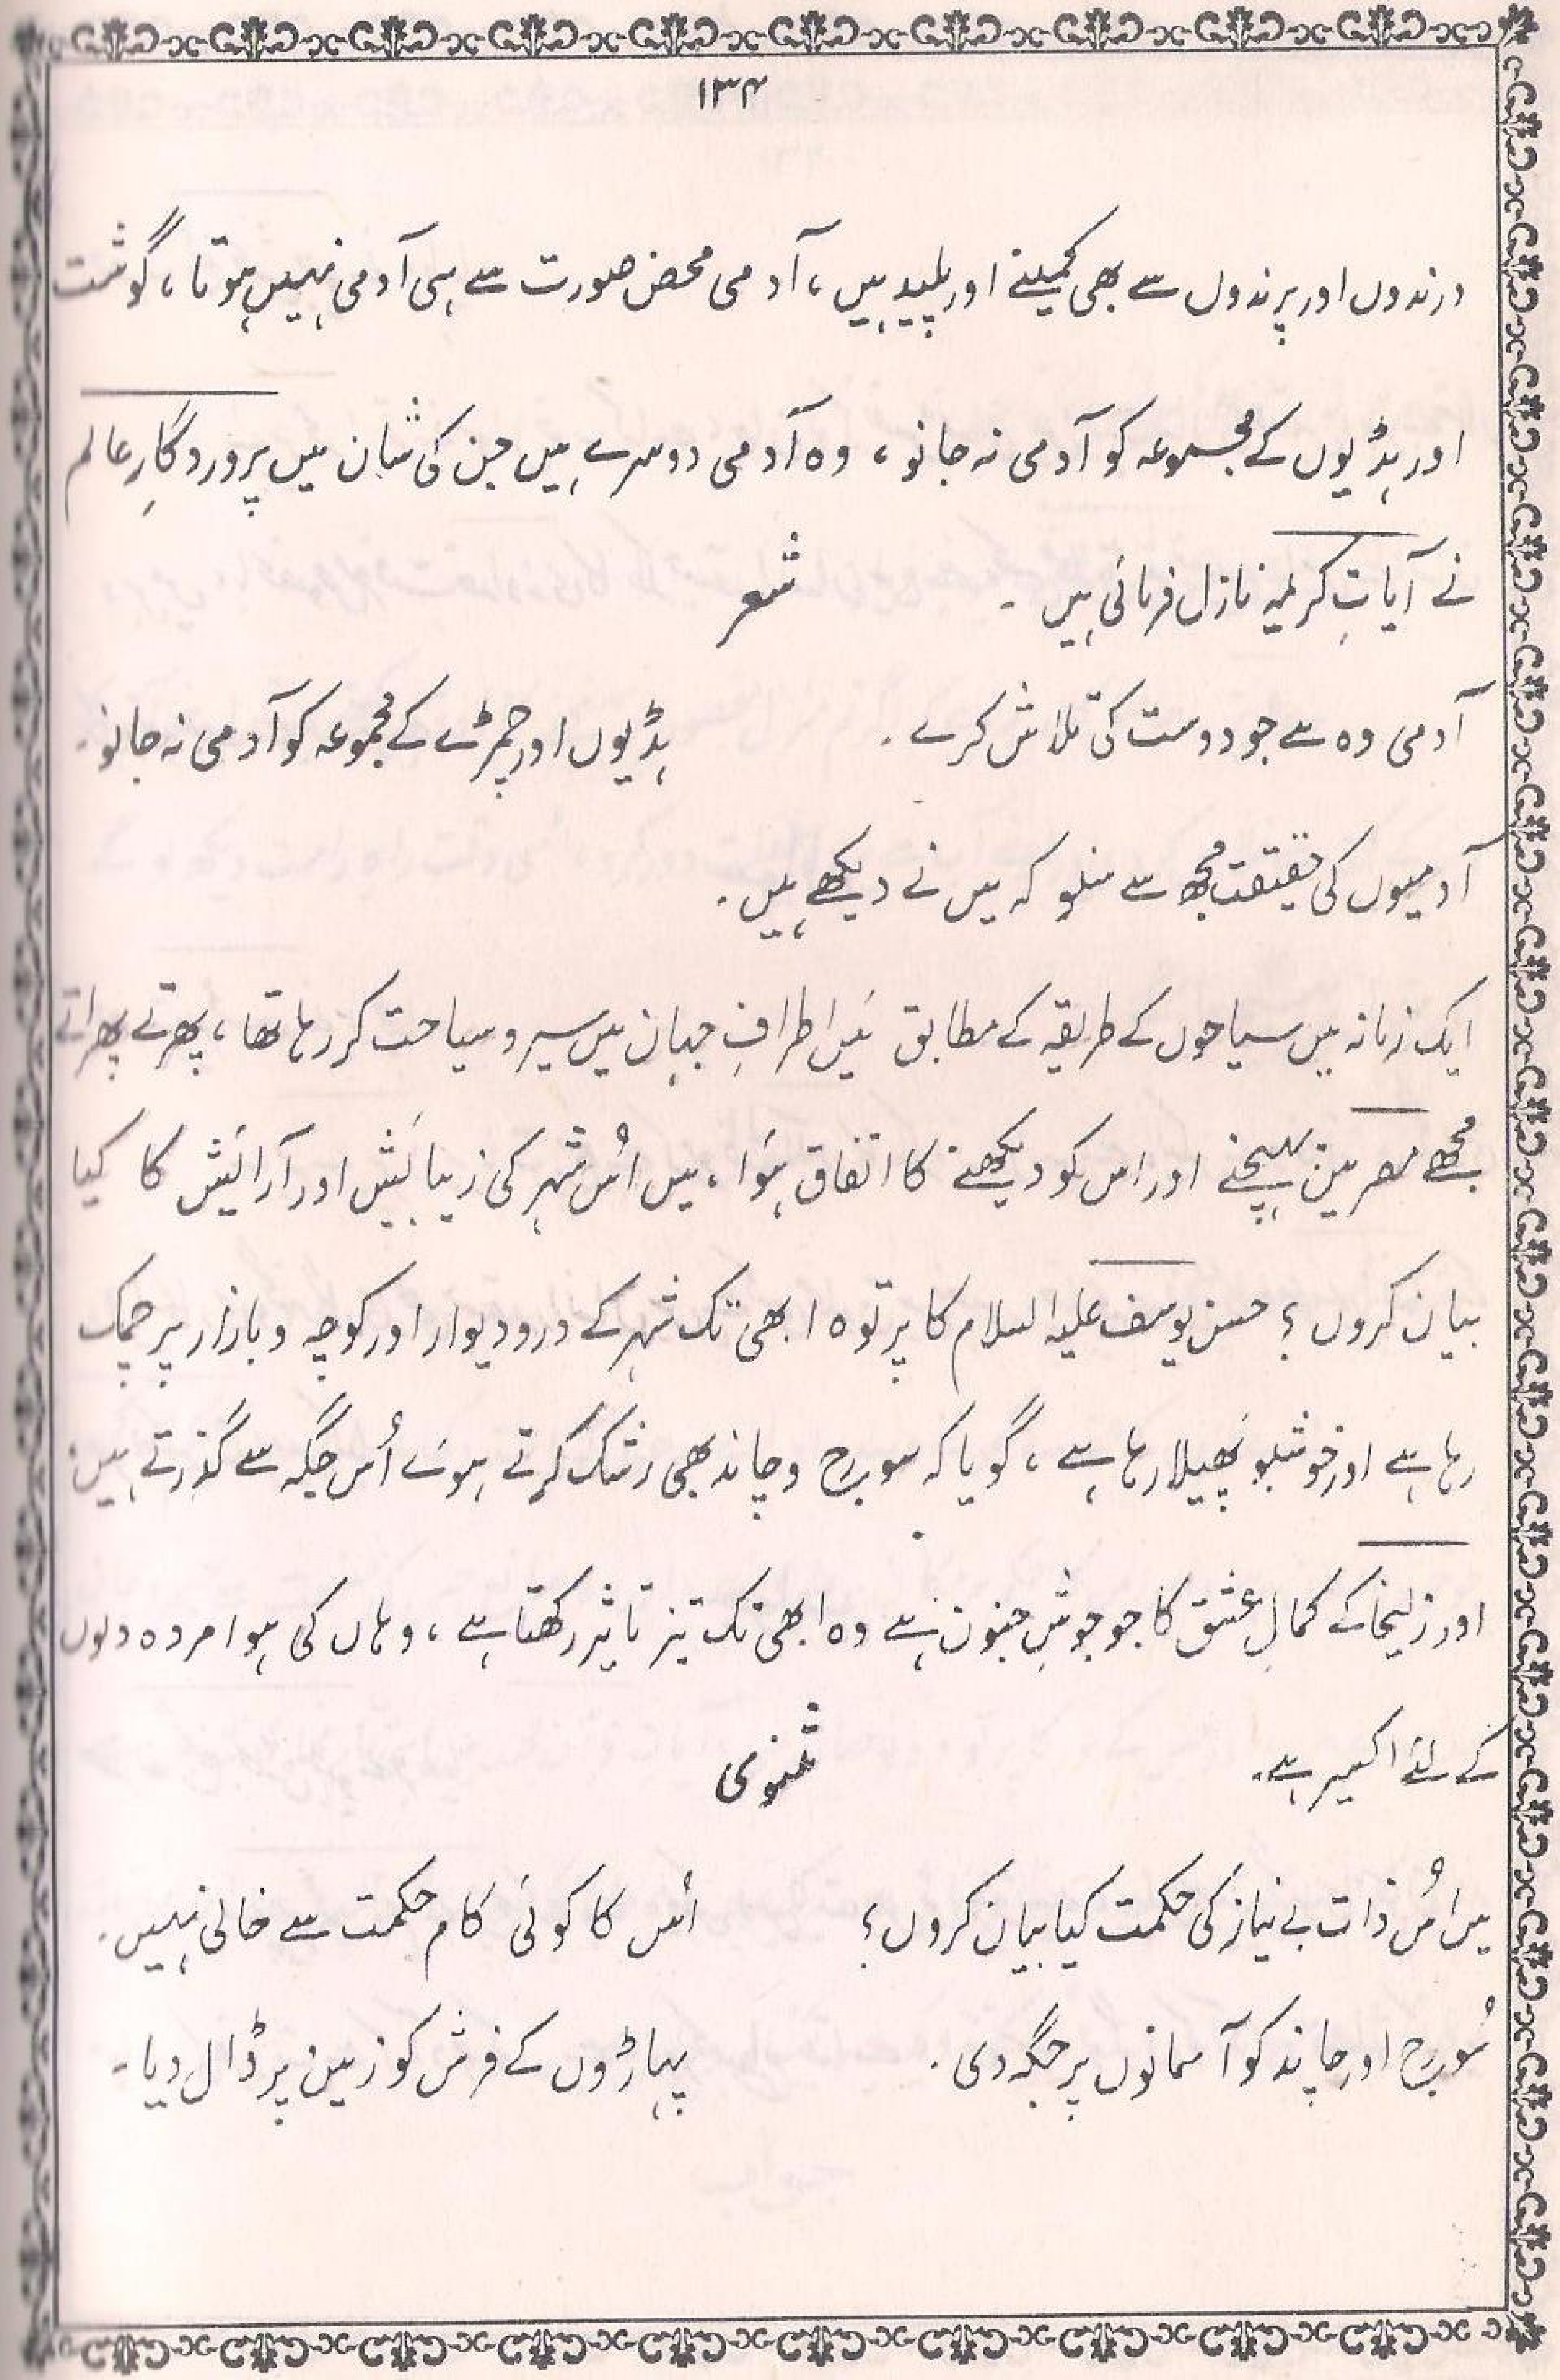 ۱۳۴
درندوں اور پرندوں سے بھی کمینے اور پلید ہیں ، آدمی محض صورت سے ہی آدمی نہیں ہوتا ، گوشت
اور ہڈیوں کے مجموعہ کو آدمی نہ جانو ، وہ آدمی دوسرے ہیں جن کی شان میں پروردگارِ عالم
نے آیاتِ کریمہ نازل فرمائی ہیں ۔ شعر
آدمی وہ ہے جو دوست کی تلاش کرے ۔ ہڈیوں اور چمڑے کے مجموعہ کو آدمی نہ جانو ۔
آدمیوں کی حقیقت مجھ سے سنلو کہ میں نے دیکھے ہیں ۔
ایک زمانہ میں سیاحوں کے طریقہ کے مطابق مَیں اطرافِ جہان میں سیر و سیاحت کر رہا تھا ، پھرتے پھراتے
مجھے مصر میں پہنچنے اور اس کو دیکھنے کا اتفاق ہؤا ، میں اُس شہر کی زیبائیش اور آرائیش کا کیا
بیان کروں ؟ حسن یوسف علیہ السلام کا پرتوہ ابھی تک شہر کے در و دیوار اور کوچہ و بازار پر چمک
رہا ہے اور خوشبو پھیلا رہا ہے ، گویا کہ سورج و چاند بھی رشک کرتے ہوئے اُس جگہ سے گذرتے ہیں
اور زلیخا کے کمالِ عشق کا جو جوشِ جنون ہے وہ ابھی تک تیز تاثیر رکھتا ہے ، وہاں کی ہوا مردہ دلوں
کے لئے اکسیر ہے ۔ مثنوی
میں اُس ذات بے نیاز کی حکمت کیا بیان کروں ؟ اُس کا کوئی کام حکمت سے خالی نہیں ۔
سُورج اور چاند کو آسمانوں پر جگہ دی ۔ پہاڑوں کے فرش کو زمین پر ڈال دیا ۔